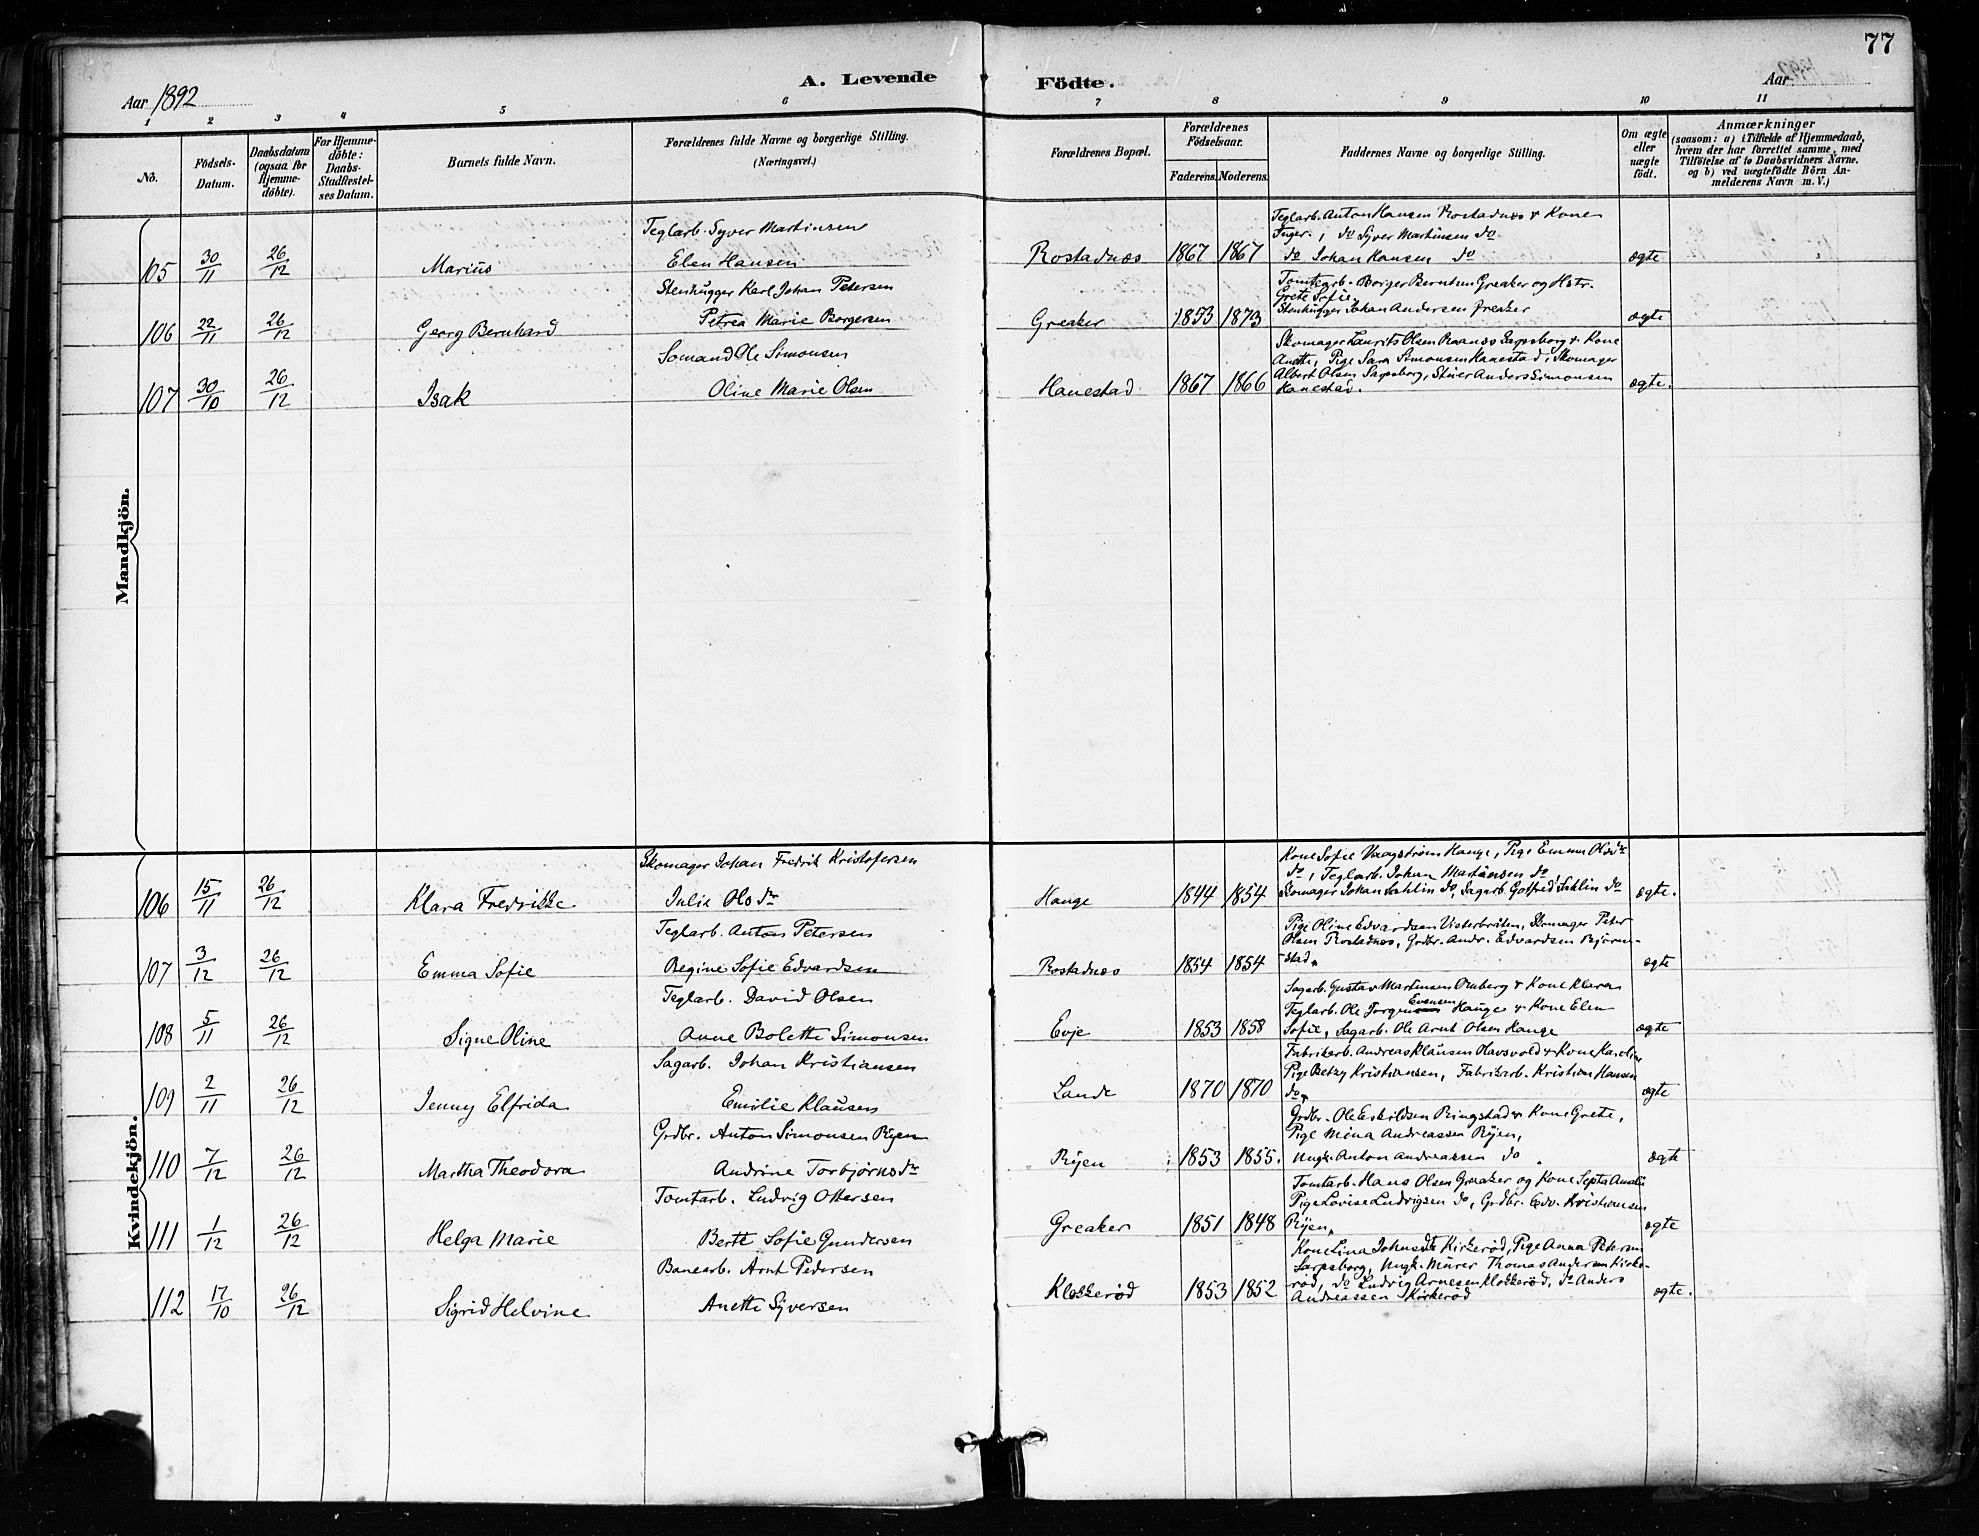 77
A. Levende Födte.
Aar 1892
Aar
1 2 3 4 5 6 7 8 9 10 11
No.
Födsels-Datum.
Daabsdatum (ogsaa for Hjemme-döbte).
For Hjemme-döbte: Daabs-Stadfestel-ses Datum.
Barnets fulde Navn.
Forældrenes fulde Navne og borgerlige Stilling. (Næringsvei.)
Forældrenes Bopæl.
Forældrenes Födselsaar.
Faderens. Moderens.
Faddernes Navne og borgerlige Stilling.
Om ægte eller uægte födt.
Anmærkninger
(saasom: a) i Tilfælde af Hjemmedaab, hvem der har forrettet samme, med Tilföielse af to Daabsvidners Navne. og b) ved uægtefödte Börn An-melderens Navn m. V.)
Mandkjön.
105 30/11 26/12 Marius
Teglarb. Syver Martinsen
Elen Hansen
Rostadnæs 1867 1867
Teglarb. Anton Hansen Rostadnæs & Kone
Inger, do Syver Martinsen do
do Johan Hansen do
ægte
106 22/11 26/12 Georg Bernhard
Stenhugger Karl Johan Petersen
Petrea Marie Borgersen
Greaker 1853 1873
Tomtearb. Borger Berntsen Greaker og Hstr.
Grete Sofie,
Stenhugger Johan Andersen Greaker
ægte
107 30/10 26/12 Isak
Sømand Ole Simonsen
Oline Marie Olsen
Hanestad 1867 1866
Skomager Laurits Olsen Sarpsborg & Kone
Anette, Pige Sara Simonsen Hanestad, Skomager
Albert Olsen Sarpsborg, Anders Simonsen
Hanestad.
ægte.
Kvindekjön.
106 15/11 26/12 Klara Fredrikke
Skomager Johan Fredrik Kristofersen
Julie Olsdr
Hauge 1844 1854
Kone Sofie Vaagström Hauge, Pige Emma Olsdr
do, Teglarb. Johan Martinsen do,
Skomager Johan Sahlin do, Sagarb. Gotfred Sahlin do
ægte.
107 3/12 26/12 Emma Sofie
Teglarb. Anton Petersen
Regine Sofie Edvardsen
Rostadnæs 1854 1854
Pige Oline Edvardsen Visterbråten, Skomager Peter
Olsen Rostadnæs, Grdbr. Andr. Edvardsen Bjørn-
stad.
ægte
108 5/11 26/12 Signe Oline
Teglarb. David Olsen
Anne Bolette Simonsen
Evje 1853 1858
Sagarb. Gustav Martinsen Omberg & Kone Klara
Teglarb. Ole Evensen Hauge & Kone Elen
Sofie, Sagarb. Ole Arnt Olsen Hauge
ægte
109 2/11 26/12 Jenny Elfrida
Sagarb. Johan Kristiansen
Emilie Klausen
Lande 1870 1870
Fabrikarb. Andreas Klausen Havsvold & Kone Karoline
Pige Betzy Kristiansen, Fabrikarb. Kristian Hansen
do.
ægte
110 7/12 26/12 Martha Theodora
Grdbr. Anton Simonsen Ryen
Andrine Torbjørnsdr
Ryen 1853 1855.
Grdbr. Ole Eskildsen Ringstad & Kone Grete,
Pige Mina Andreassen Ryen,
Ungk. Anton Andreassen do
ægte
111 1/12 26/12 Helga Marie
Tomtarb. Ludvig Ottersen
Berte Sofie Gundersen
Greaker 1851 1848
Tomtarb. Hans Olsen Greaker og Kone Septa Amalie
Pige Lovise Ludvigsen do, Grdbr. Edv. Kristiansen
Ryen.
ægte
112 17/10 26/12 Sigrid Helvine
Banearb. Arnt Pedersen
Anette Syversen
Klokkerød 1853 1852
Kone Lina Johnsdtr Kirkerød, Pige Anna Petersen
Sarpsborg, Ungk. Murer Thomas Andersen Kirke-
rød, do Ludvig Arnesen Klokkerød, do Anders
Andreassen Kirkerød
ægte.